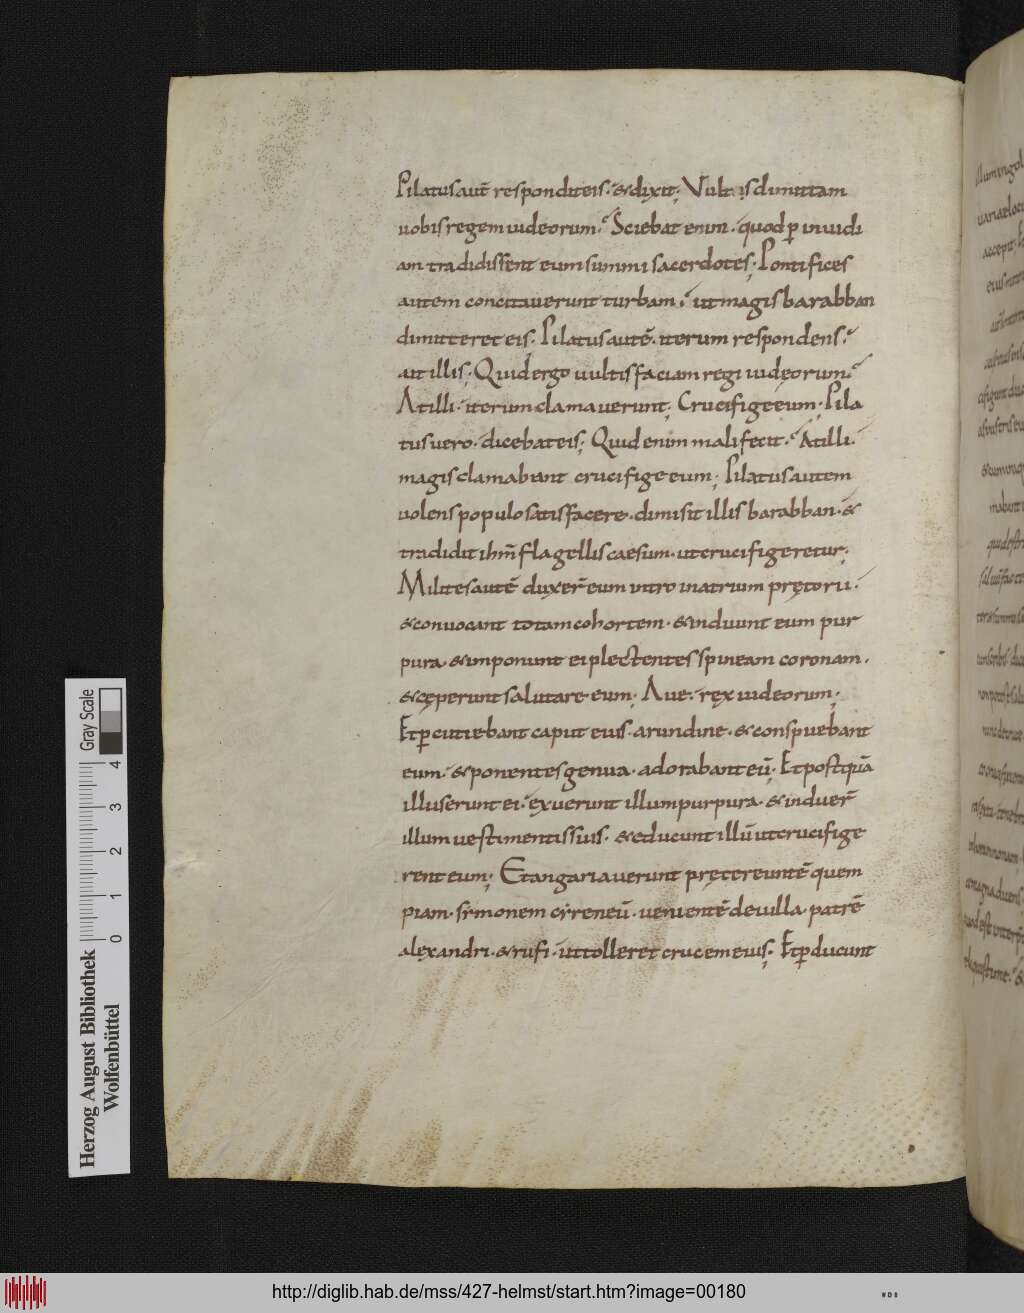 Pilatus autē respondit eis· & dixit; Vultis dimittam
uobis regem iudeorum? Sciebat enim· quod ꝑ inuidi
am tradidissent eum summi sacerdotes; Pontifices
autem concitauerunt turbam· ut magis barabban
dimitteret eis; Pilatus autē· iterum respondens·
ait illis; Quid ergo uultis faciam regi iudęorum?
At illi· iterum clamauerunt; Crucifige eum; Pila
tus uero· dicebat eis; Quid enim mali fecit? At illi·
magis clamabant crucifige eum; Pilatus autem
uolens populo satisfacere· dimisit illis barabban· &
tradidit ihm̄ flagellis caesum· ut crucifigeretur;
Milites autē duxer̄ eum intro in atrium prętorii·
& conuocant totam cohortem· & induunt eum pur
pura· & imponunt ei plectentes spineam coronam·
& cęperunt salutare eum; Aue· rex iudeorum;
Et ꝑcutiebant caput eius· arundine· & conspuebant
eum· & ponentes genua· adorabant eū; Et postquā
illuserunt ei· exuerunt illum purpura· & induer̄
illum uestimentis suis· & educunt illū ut crucifige
rent eum; Et angariauerunt prętereuntē quem
piam· symonem cyreneū· uenientē de uilla· patrē
alexandri· & rufi· ut tolleret crucem eius; Et ꝑducunt
Gray Scale
4
3
2
1
0
Herzog August Bibliothek
Wolfenbüttel
http://diglib.hab.de/mss/427-helmst/start.htm?image=00180